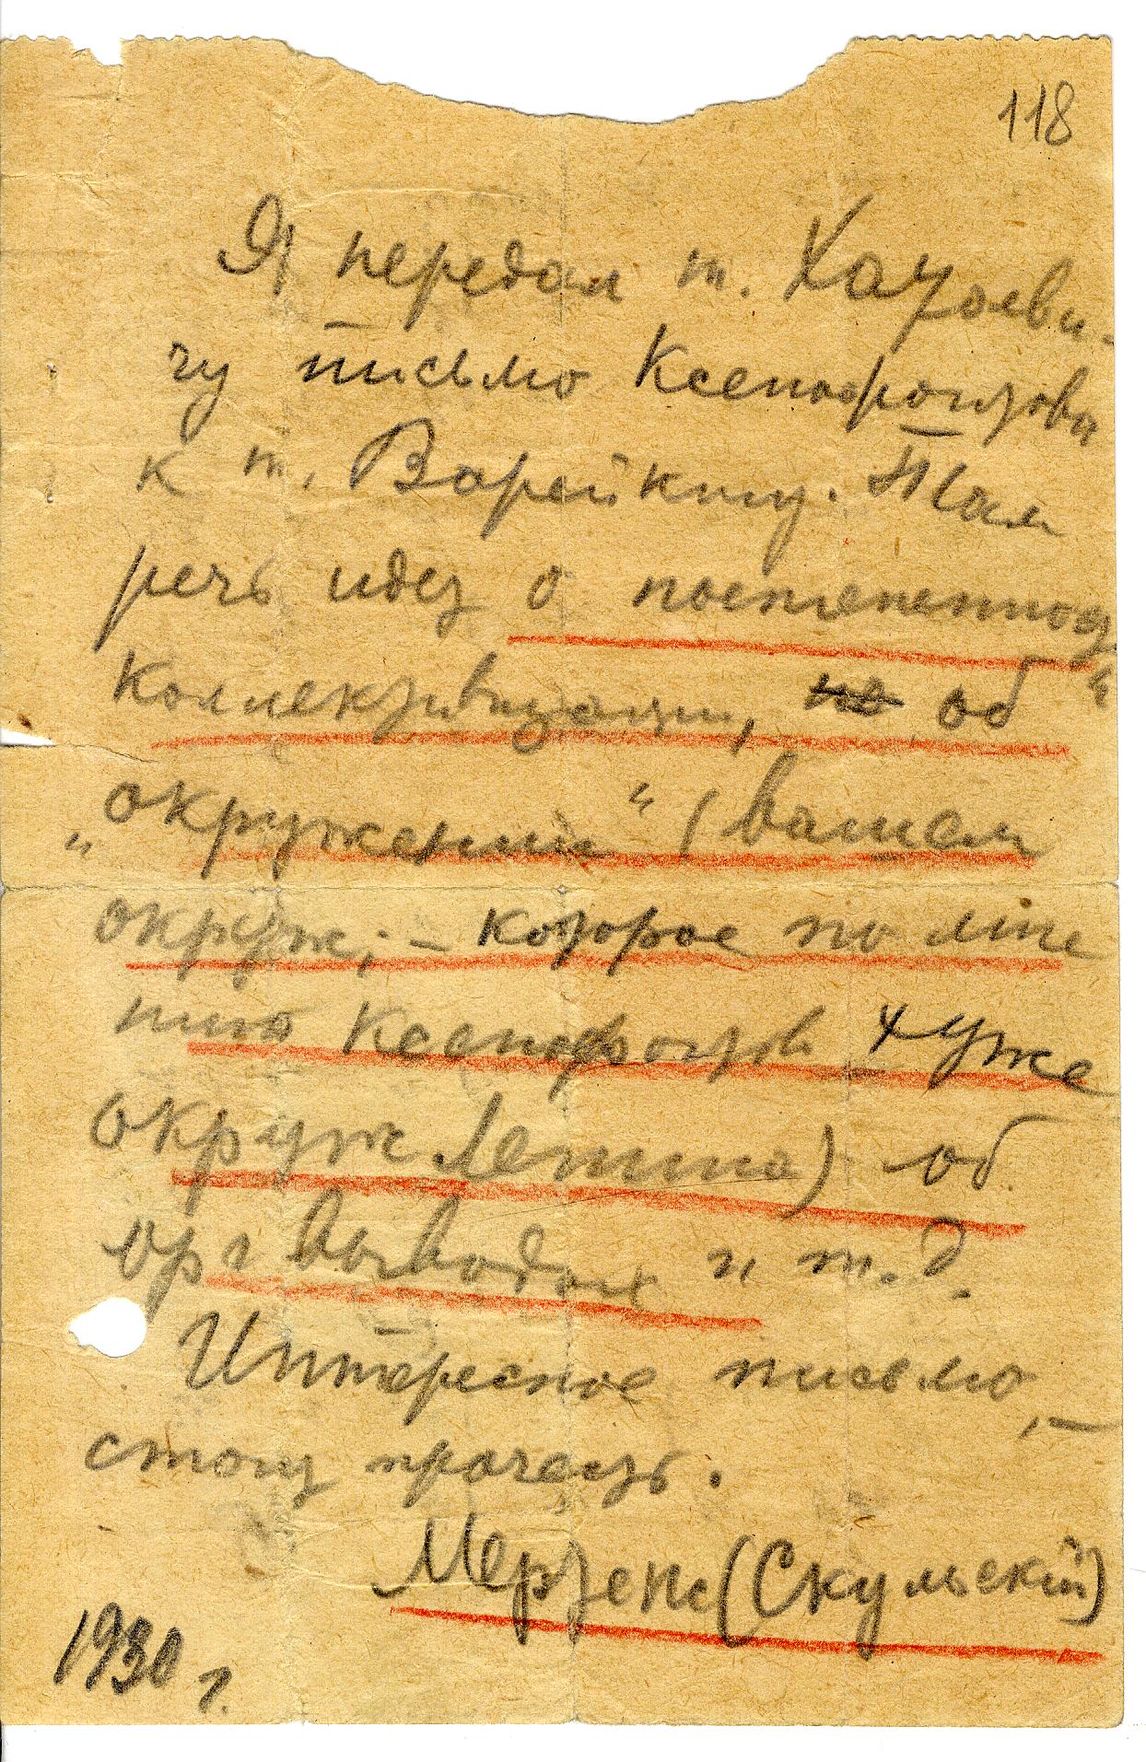 118
Я передал т. Хатаеви-
чу письмо Ксенофонтова
к т. Варейкису. Там
речь идет о постепенной
коллективизации, но об
„окружении“ (вашем
окруж, – которое по мне
нию Ксенофонтов хуже
окруж. Ленина) об
оргвыводах и т.д.
Интересное письмо, –
стоит прочесть.
Мерзенс (Скульский)
1930 г.